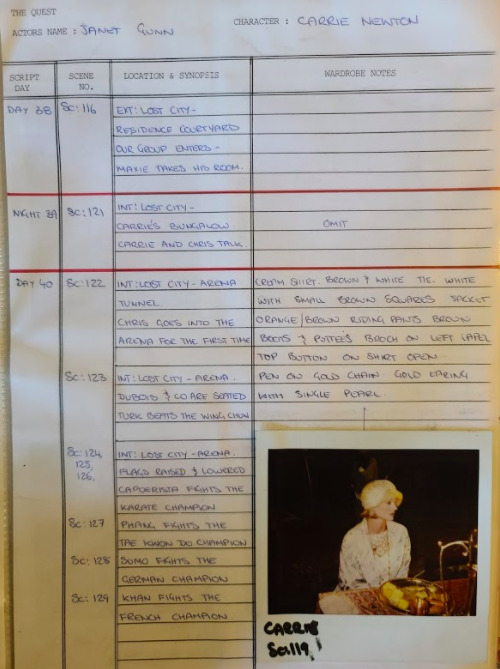 THE QUEST
CHARACTER : CARRIE NEWTON
ACTORS NAME : JANET GUNN
SCRIPT DAY
SCENE NO.
LOCATION & SYNOPSIS
WARDROBE NOTES
DAY 38 Sc: 116 EXT: LOST CITY -
RESIDENCE COURTYARD
OUR GROUP ENTERS -
MAXIE TAKES HIS ROOM.
NIGHT 39 Sc: 121 INT: LOST CITY -
CARRIE'S BUNGALOW OMIT
CARRIE AND CHRIS TALK.
DAY 40 Sc: 122 INT: LOST CITY - ARENA CREAM SHIRT. BROWN & WHITE TIE. WHITE
TUNNEL WITH SMALL BROWN SQUARES JACKET
CHRIS GOES INTO THE ORANGE/BROWN RIDING PANTS BROWN
ARENA FOR THE FIRST TIME BOOTS & PUTTEES BROCH ON LEFT LAPEL
TOP BUTTON ON SHIRT OPEN.
Sc: 123 INT: LOST CITY - ARENA. PEN ON GOLD CHAIN GOLD EARING
DUBOIS & CO ARE SEATED WITH SINGLE PEARL.
TURK BEATS THE WING CHUN
Sc: 124, INT: LOST CITY - ARENA.
125, FLAGS RAISED & LOWERED
126, CAPOERISTA FIGHTS THE
KARATE CHAMPION
Sc: 127 PHANG FIGHTS THE
TAE KWON DO CHAMPION
Sc: 128 SUMO FIGHTS THE
GERMAN CHAMPION
Sc: 129 KHAN FIGHTS THE
FRENCH CHAMPION
CARRIE
Sc 119